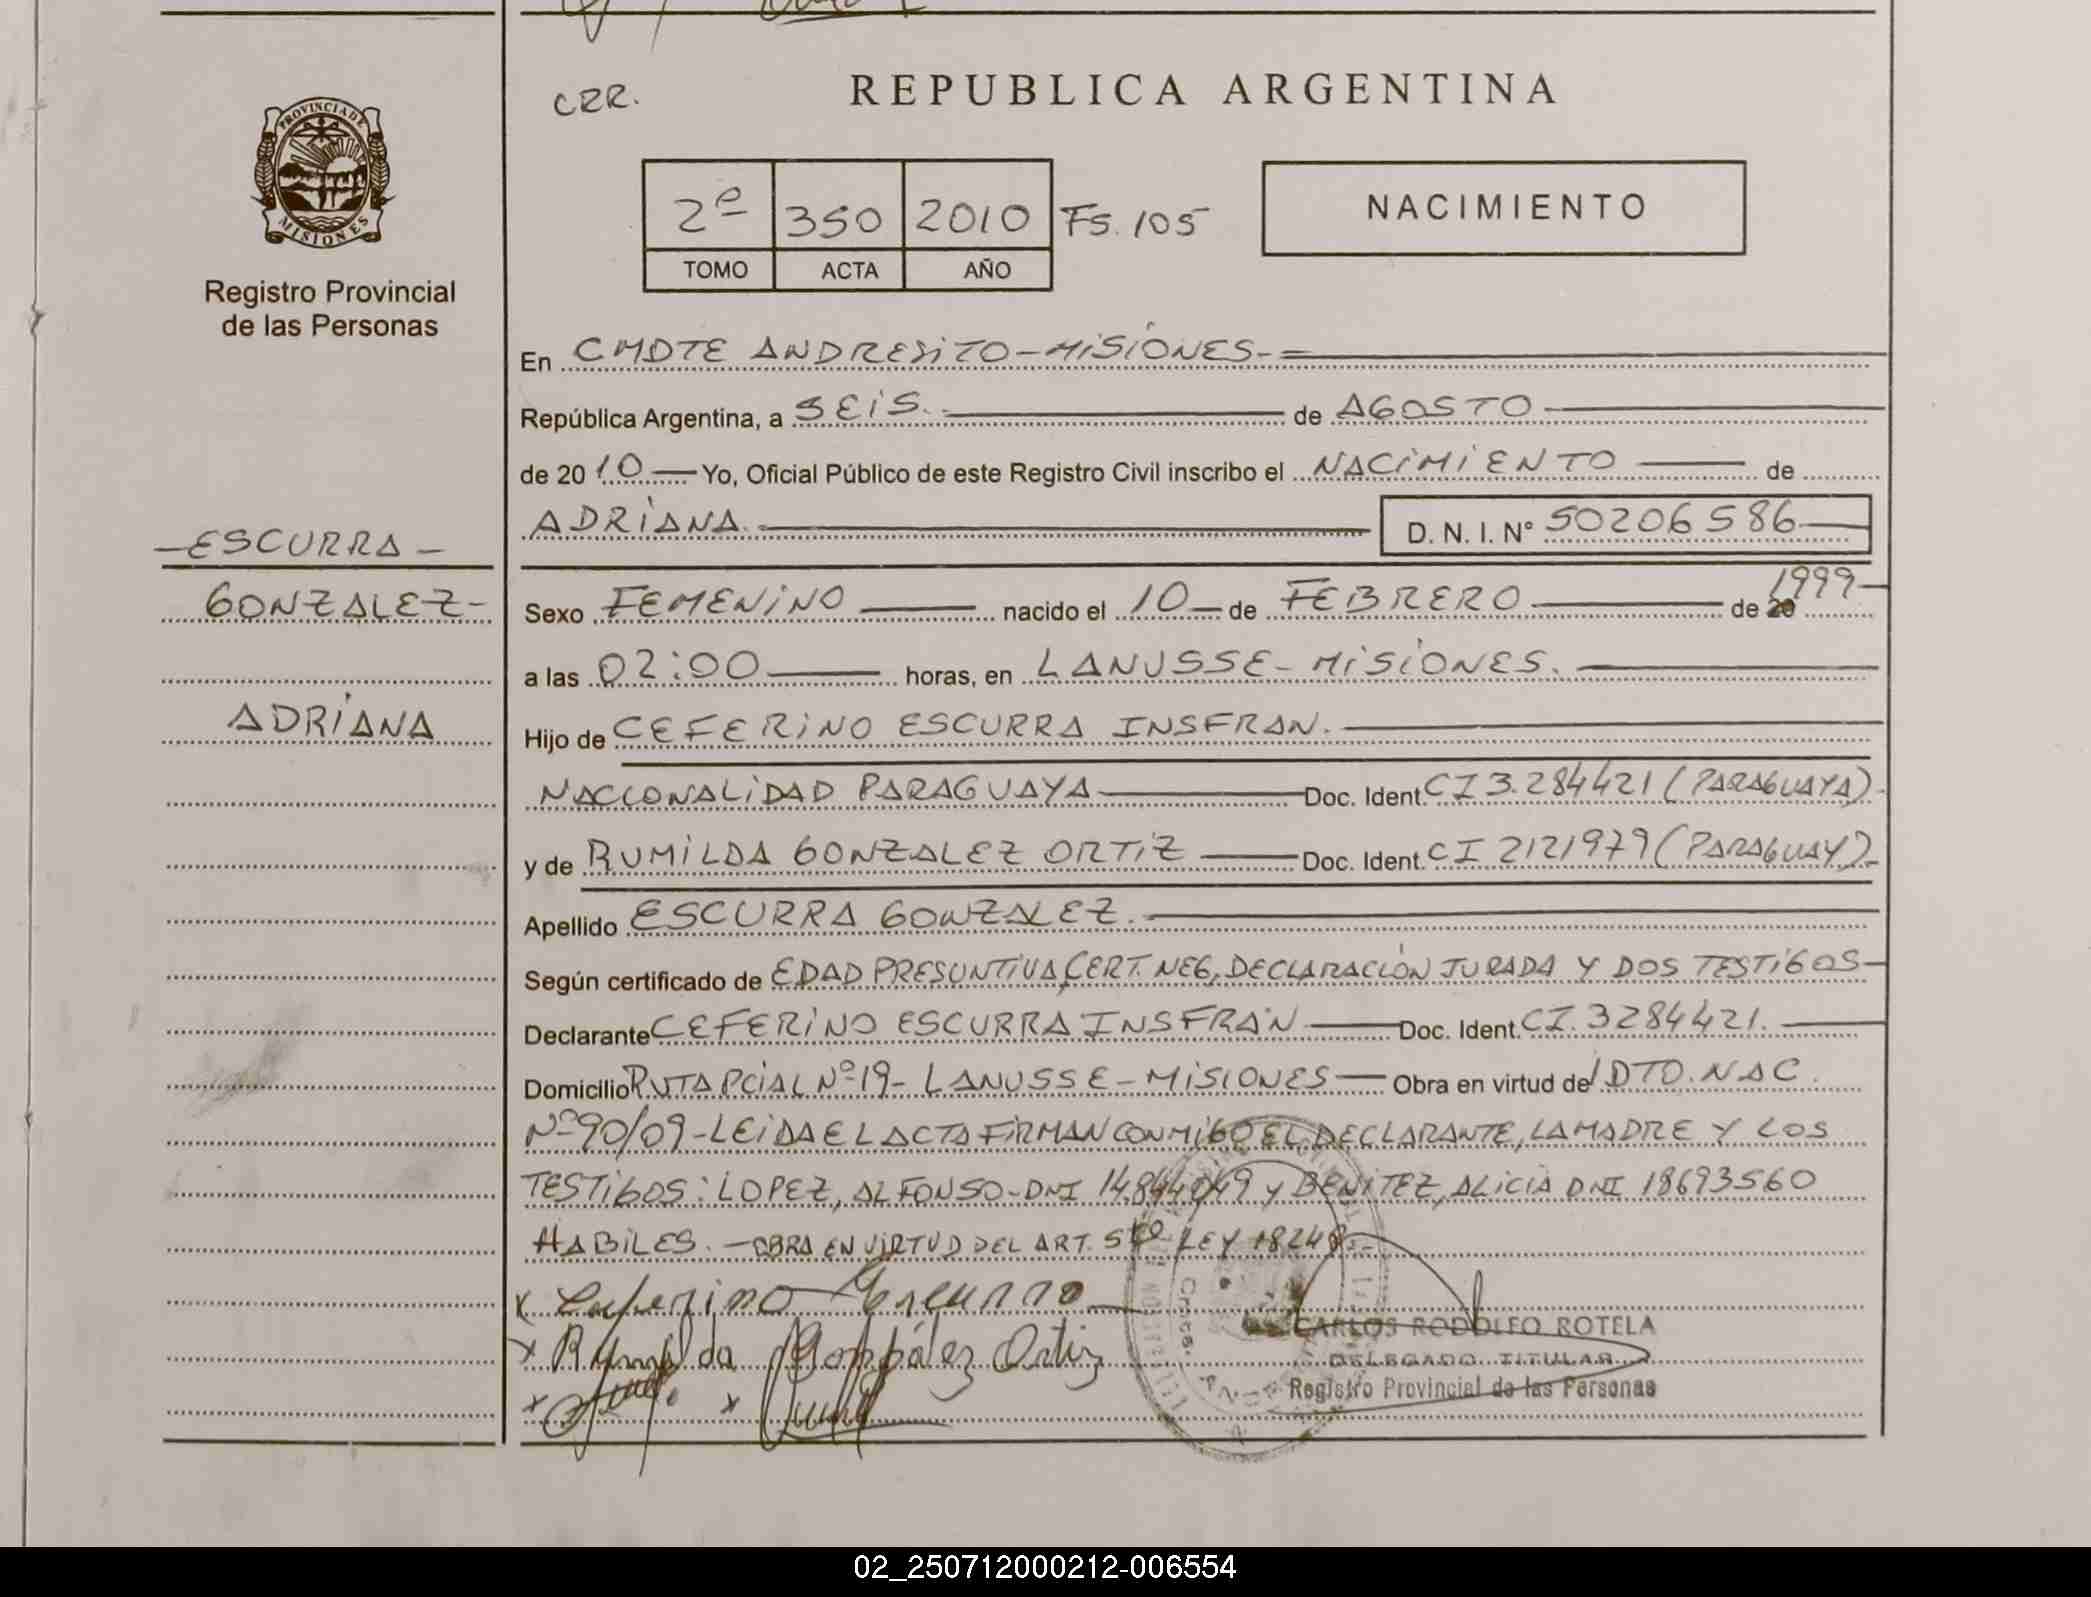 PROVINCIA DE
MISIONES
Registro Provincial
de las Personas
CRR.
REPUBLICA ARGENTINA
2º 350 2010 Fs. 105
TOMO ACTA AÑO
NACIMIENTO
En CMDTE ANDRESITO-MISIONES-
República Argentina, a SEIS. de AGOSTO
de 2010 Yo, Oficial Público de este Registro Civil inscribo el NACIMIENTO de
ADRIANA. D. N. I. Nº 50206586
-ESCURRA-
GONZALEZ-
ADRIANA
Sexo FEMENINO nacido el 10 de FEBRERO de 20 1999
a las 02:00 horas, en LANUSSE-MISIONES.
Hijo de CEFERINO ESCURRA INSFRAN.
NACIONALIDAD PARAGUAYA Doc. Ident. CI 3.284421 (PARAGUAYA)-
y de RUMILDA GONZALEZ ORTIZ Doc. Ident. CI 2121979 (PARAGUAY)-
Apellido ESCURRA GONZALEZ.
Según certificado de EDAD PRESUNTIVA, CERT. NEG, DECLARACION JURADA Y DOS TESTIGOS-
Declarante CEFERINO ESCURRA INSFRAN Doc. Ident. CI. 3284421.
Domicilio RUTA PCIAL Nº 19- LANUSSE-MISIONES Obra en virtud de DTO. NAC.
Nº 90/09-LEIDA EL ACTA FIRMAN CONMIGO EL DECLARANTE, LA MADRE Y LOS
TESTIGOS: LOPEZ, ALFONSO-DNI 14.844049 Y BENITEZ, ALICIA DNI 18693560
HABILES.-OBRA EN VIRTUD DEL ART. 5to LEY 18248.-
x Ceferino Escurra
x Rumilda González Ortiz
x x
CARLOS RODOLFO ROTELA
DELEGADO TITULAR
Registro Provincial de las Personas
02_250712000212-006554